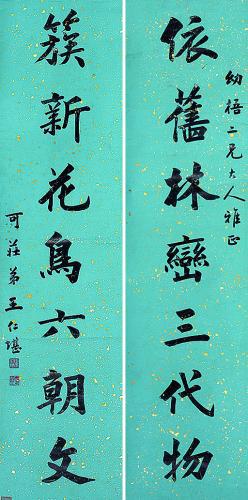 幼梧二兄大人雅正
依舊林巒三代物
簇新花鳥六朝文
可莊弟王仁堪